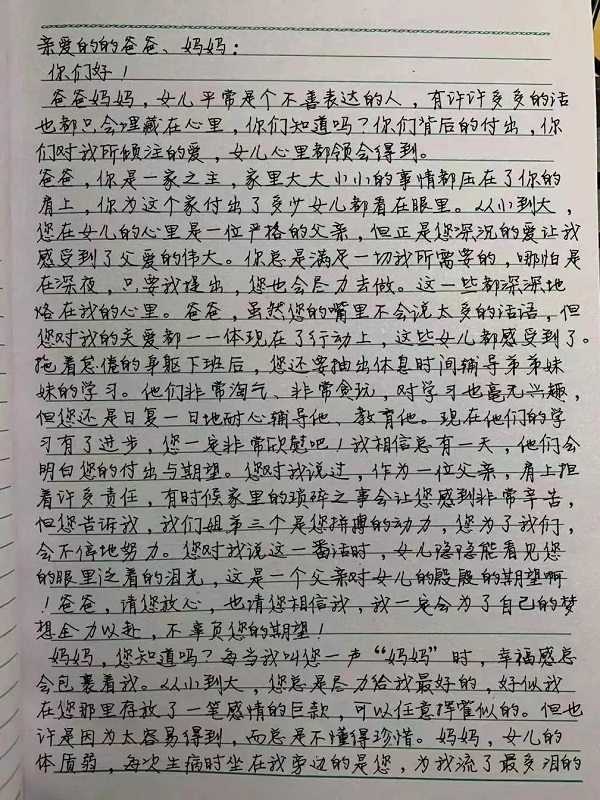 亲爱的的爸爸、妈妈：
你们好！
爸爸妈妈，女儿平常是个不善表达的人，有许许多多的话
也都只会埋藏在心里，你们知道吗？你们背后的付出，你
们对我所倾注的爱，女儿心里都领会得到。
爸爸，你是一家之主，家里大大小小的事情都压在了你的
肩上，你为这个家付出了多少女儿都看在眼里。从小到大，
您在女儿的心里是一位严格的父亲，但正是您深沉的爱让我
感受到了父爱的伟大。你总是满足一切我所需要的，哪怕是
在深夜，只要我提出，您也会尽力去做。这一些都深深地
烙在我的心里。爸爸，虽然您的嘴里不会说太多的话语，但
您对我的关爱都一一体现在了行动上，这些女儿都感受到了。
拖着怠倦的身躯下班后，您还要抽出休息时间辅导弟弟妹
妹的学习。他们非常淘气、非常贪玩，对学习也毫无兴趣，
但您还是日复一日地耐心辅导他、教育他。现在他们的学
习有了进步，您一定非常欣慰吧！我相信总有一天，他们会
明白您的付出与期望。您对我说过，作为一位父亲，肩上担
着许多责任，有时候家里的琐碎之事会让您感到非常辛苦，
但您告诉我，我们姐弟三个是您拼搏的动力，您为了我们，
会不停地努力。您对我说这一番话时，女儿隐隐能看见您
的眼里泛着的泪光，这是一个父亲对女儿的殷殷的期望啊
！爸爸，请您放心，也请您相信我，我一定会为了自己的梦
想全力以赴，不辜负您的期望！
妈妈，您知道吗？每当我叫您一声“妈妈”时，幸福感总
会包裹着我。从小到大，您总是尽力给我最好的，好似我
在您那里存放了一笔感情的巨款，可以任意挥霍似的。但也
许是因为太容易得到，而总是不懂得珍惜。妈妈，女儿的
体质弱，每次生病时坐在我旁边的是您，为我流了最多泪的